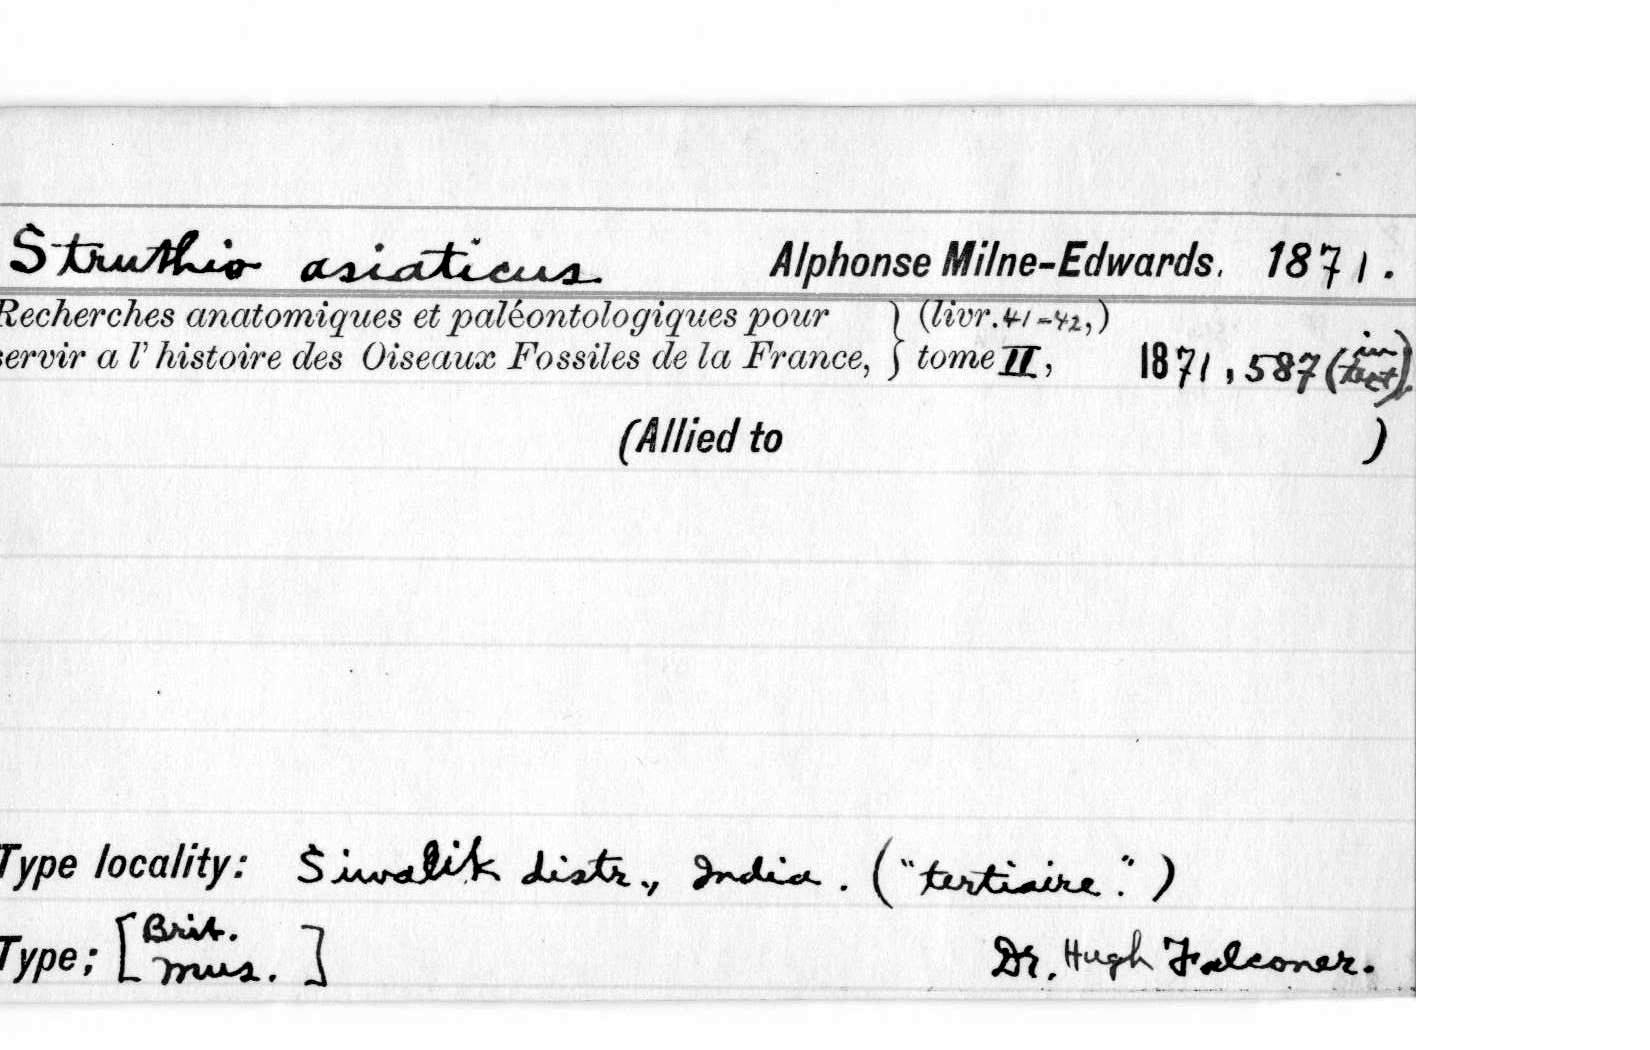 Struthio asiaticus Alphonse Milne-Edwards. 1871.
Recherches anatomiques et paléontologiques pour } (livr. 41-42,)
servir a l'histoire des Oiseaux Fossiles de la France, } tome II, 1871, 587 (in text).
(Allied to )
Type locality: Siwalik distr., India. ("tertiaire".)
Type; [Brit. Mus.] Dr. Hugh Falconer.